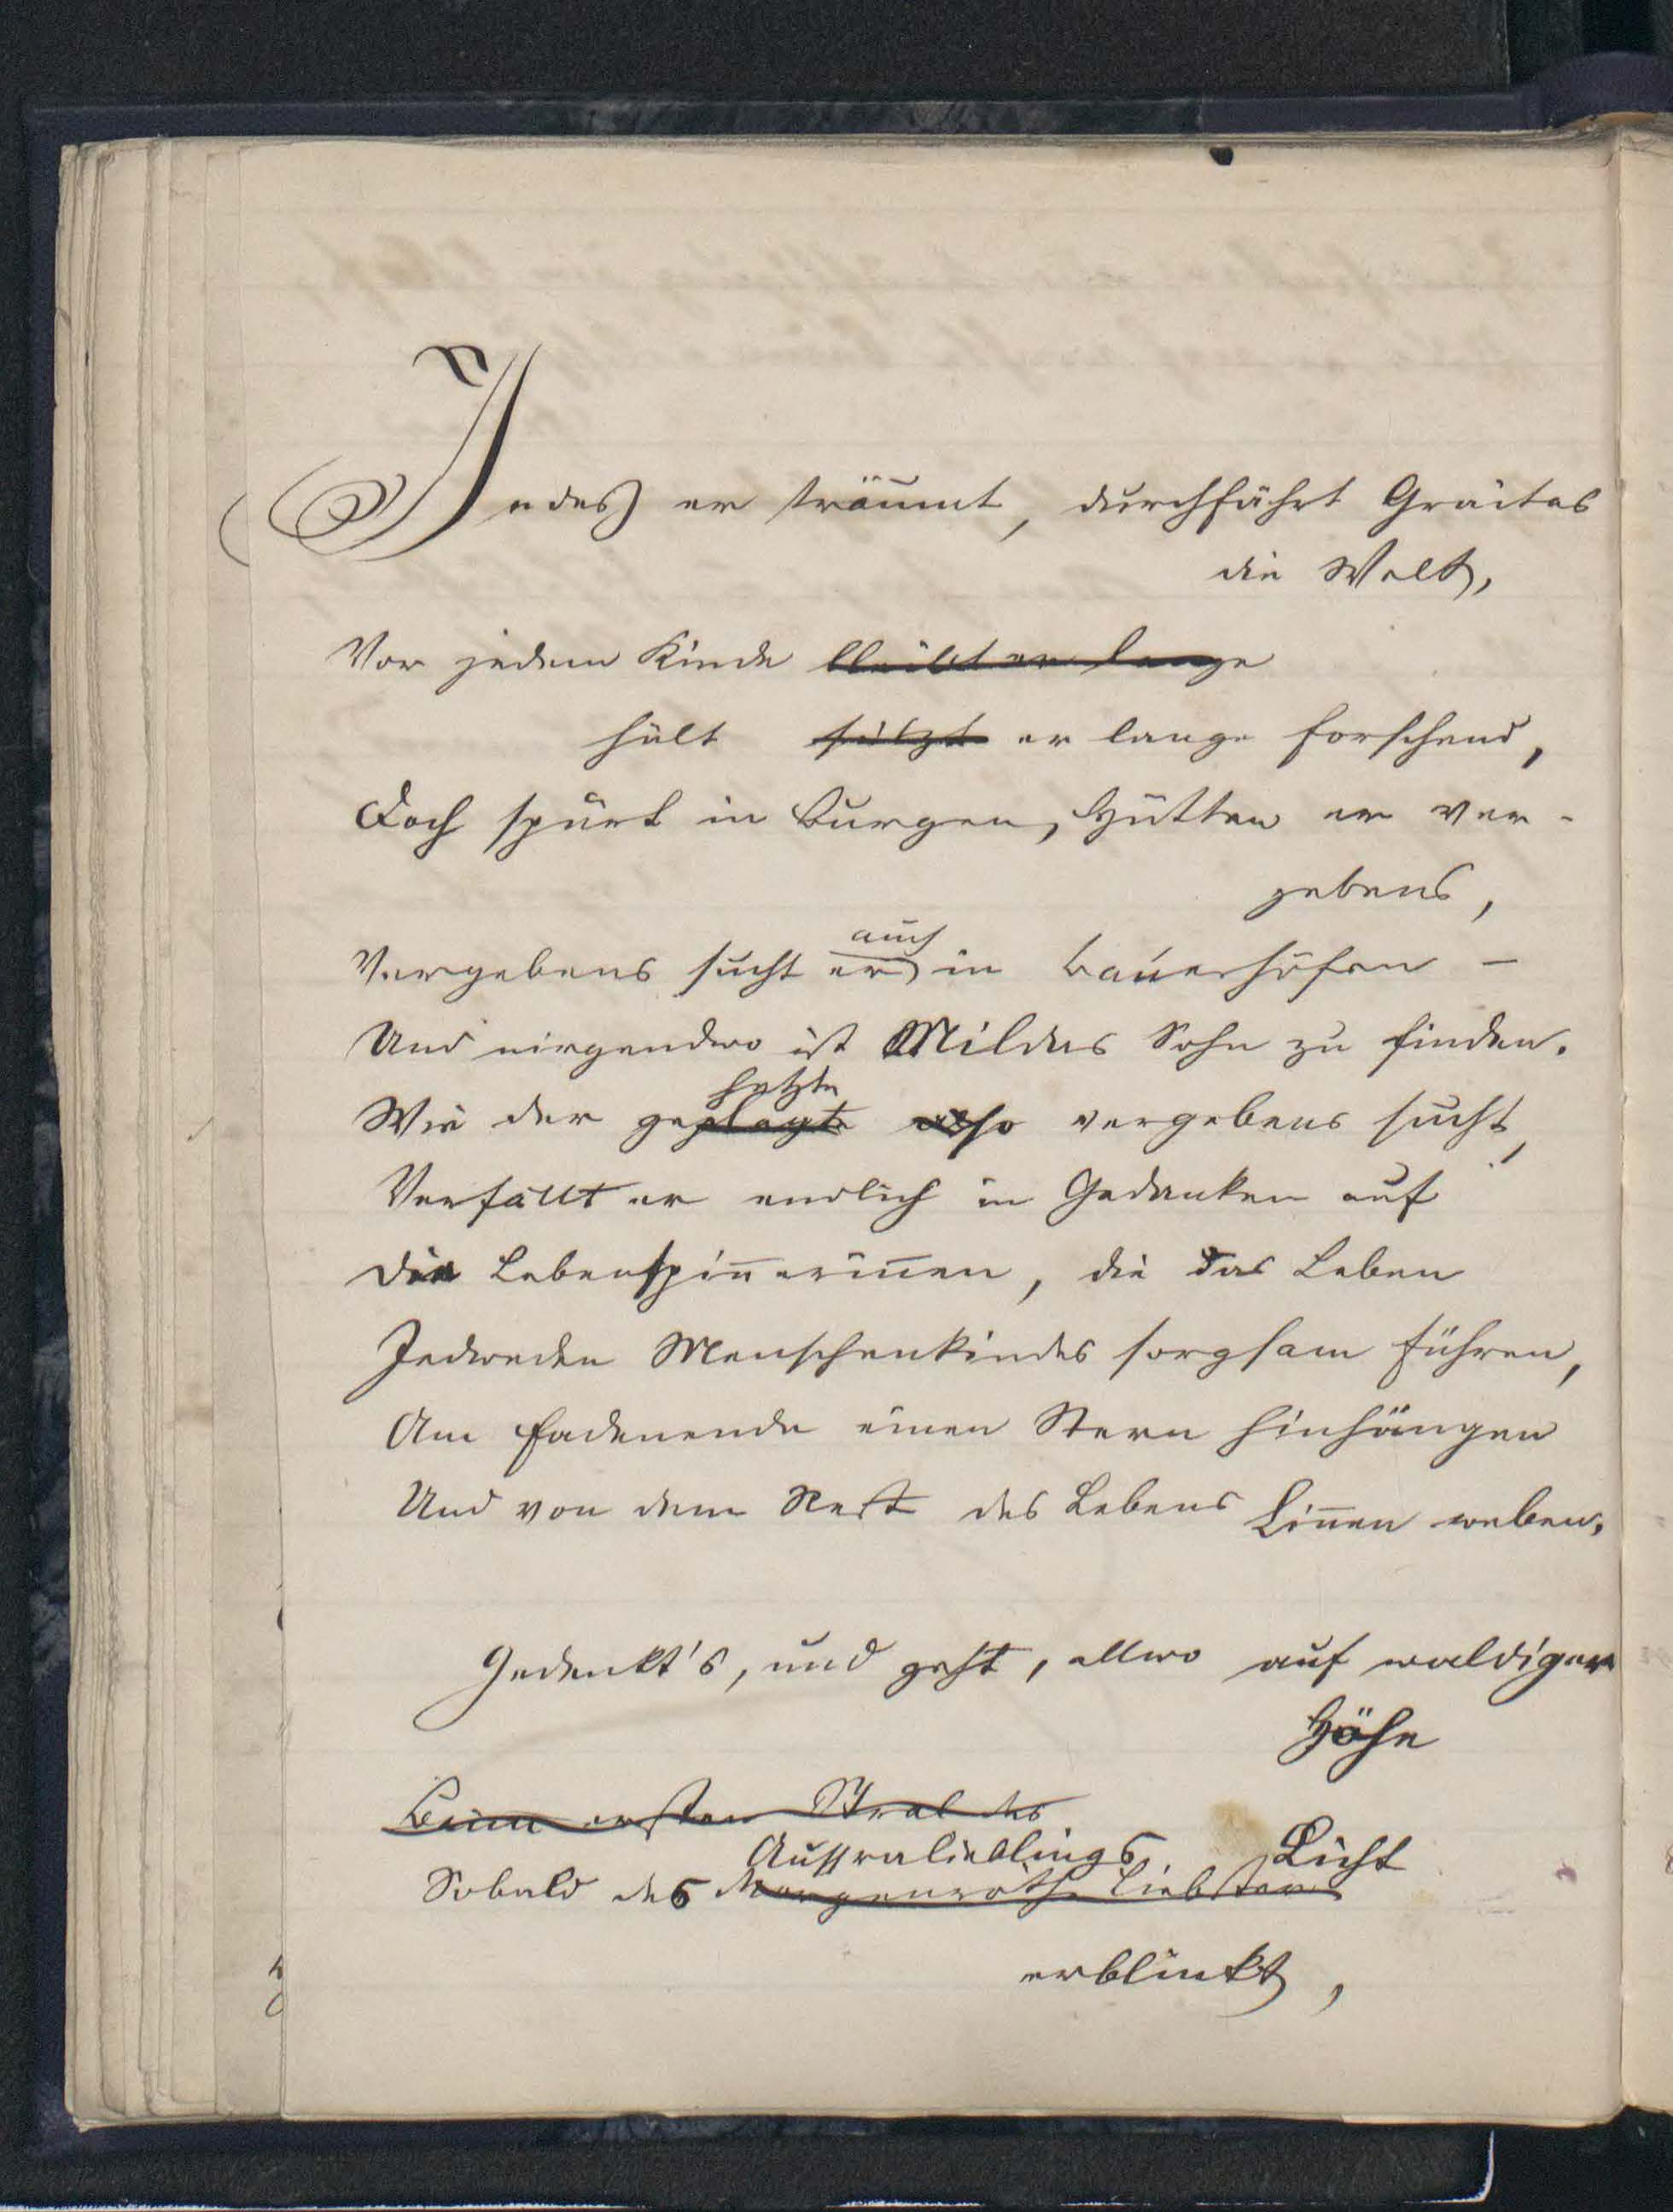 Indes er träumt, durchfährt Graitas
die Welt,
Vor jedem Kinde bleibt er lange
hält sitzt er lange forschend,
Doch spürt in Burgen, Hütten er ver-
gebens,
auch
Vergebens sucht er in Bauerhöfen –
Und nirgendwo ist Mildas Sohn zu finden.
hetzte
Wie der geplagte also vergebens sucht,
Verfällt er endlich in Gedanken auf
Die Lebenspin̅erin̅en, die das Leben
Jedweden Menschenkindes sorgsam führen,
Am Fadenende einen Stern hinhängen
Und von dem Rest des Lebens Lin̅en weben.
Gedenkt's, und geht, allwo auf waldiger
Höhe
Beim ersten Stral des
Aussralieblings Licht
Sobald des Morgenröthe Liebsten
erblinkt,